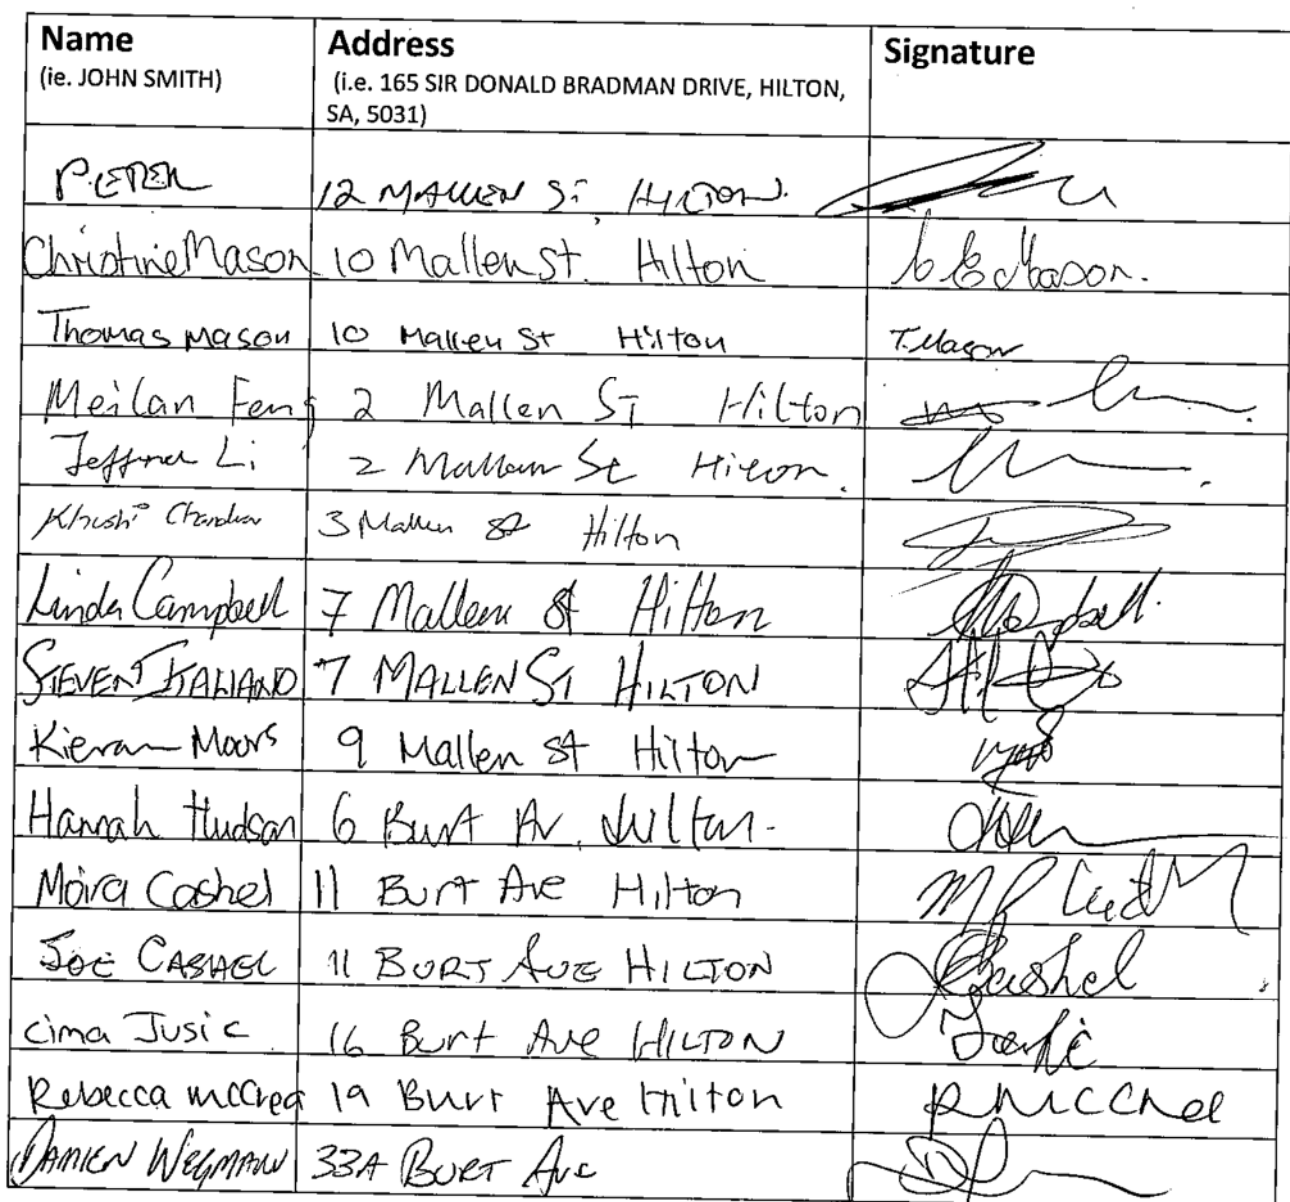 Name Address Signature
(ie. JOHN SMITH) (i.e. 165 SIR DONALD BRADMAN DRIVE, HILTON,
SA, 5031)
PETER 12 MALLEN ST, HILTON.
Christine Mason 10 Mallen St. Hilton Mason.
Thomas Mason 10 Mallen St Hilton T. Mason
Meilan Feng 2 Mallen ST Hilton
Li 2 Mallen St Hilton.
Khushi 3 Mallen St Hilton
Linda Campbell 7 Mallen St Hilton Campbell.
STEVEN ITALIANO 7 MALLEN ST HILTON
Kieran Moors 9 Mallen St Hilton
Hannah Hudson 6 Burt Av. Hilton.
Moira Cashel 11 Burt Ave Hilton
JOE CASHEL 11 BURT AVE HILTON Cashel
Cima Jusic 16 Burt Ave HILTON
Rebecca McCrea 19 Burt Ave Hilton R McCrea
DAMIEN WEGMANN 33A BURT Ave